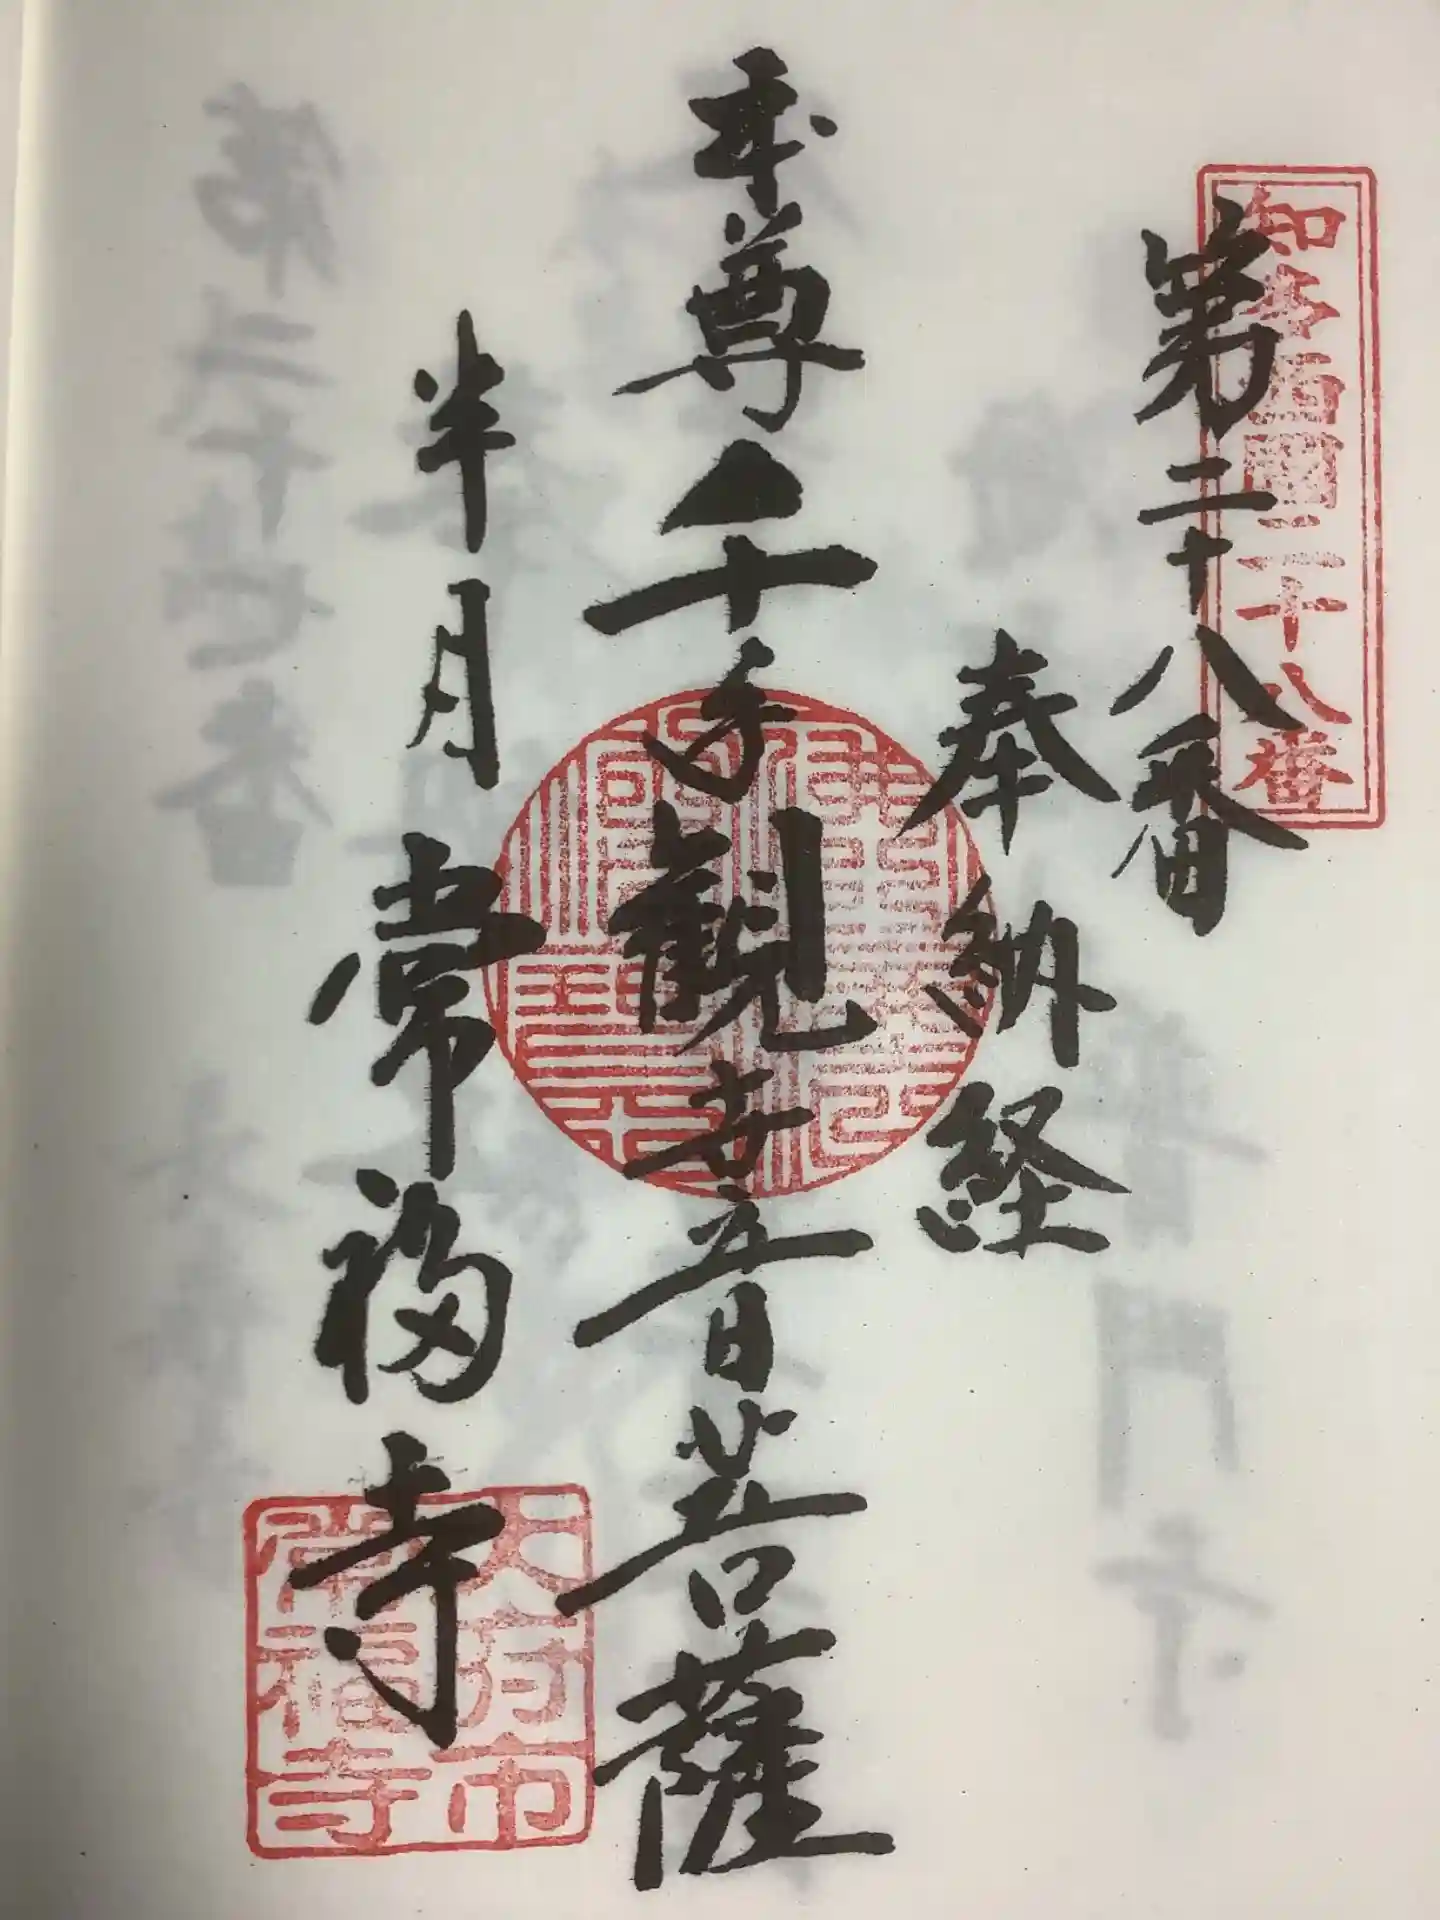 知多西國二十八番
第二十八番
奉納経
本尊千手観世音菩薩
半月 常福寺
佛法僧寶
大府市
常福寺